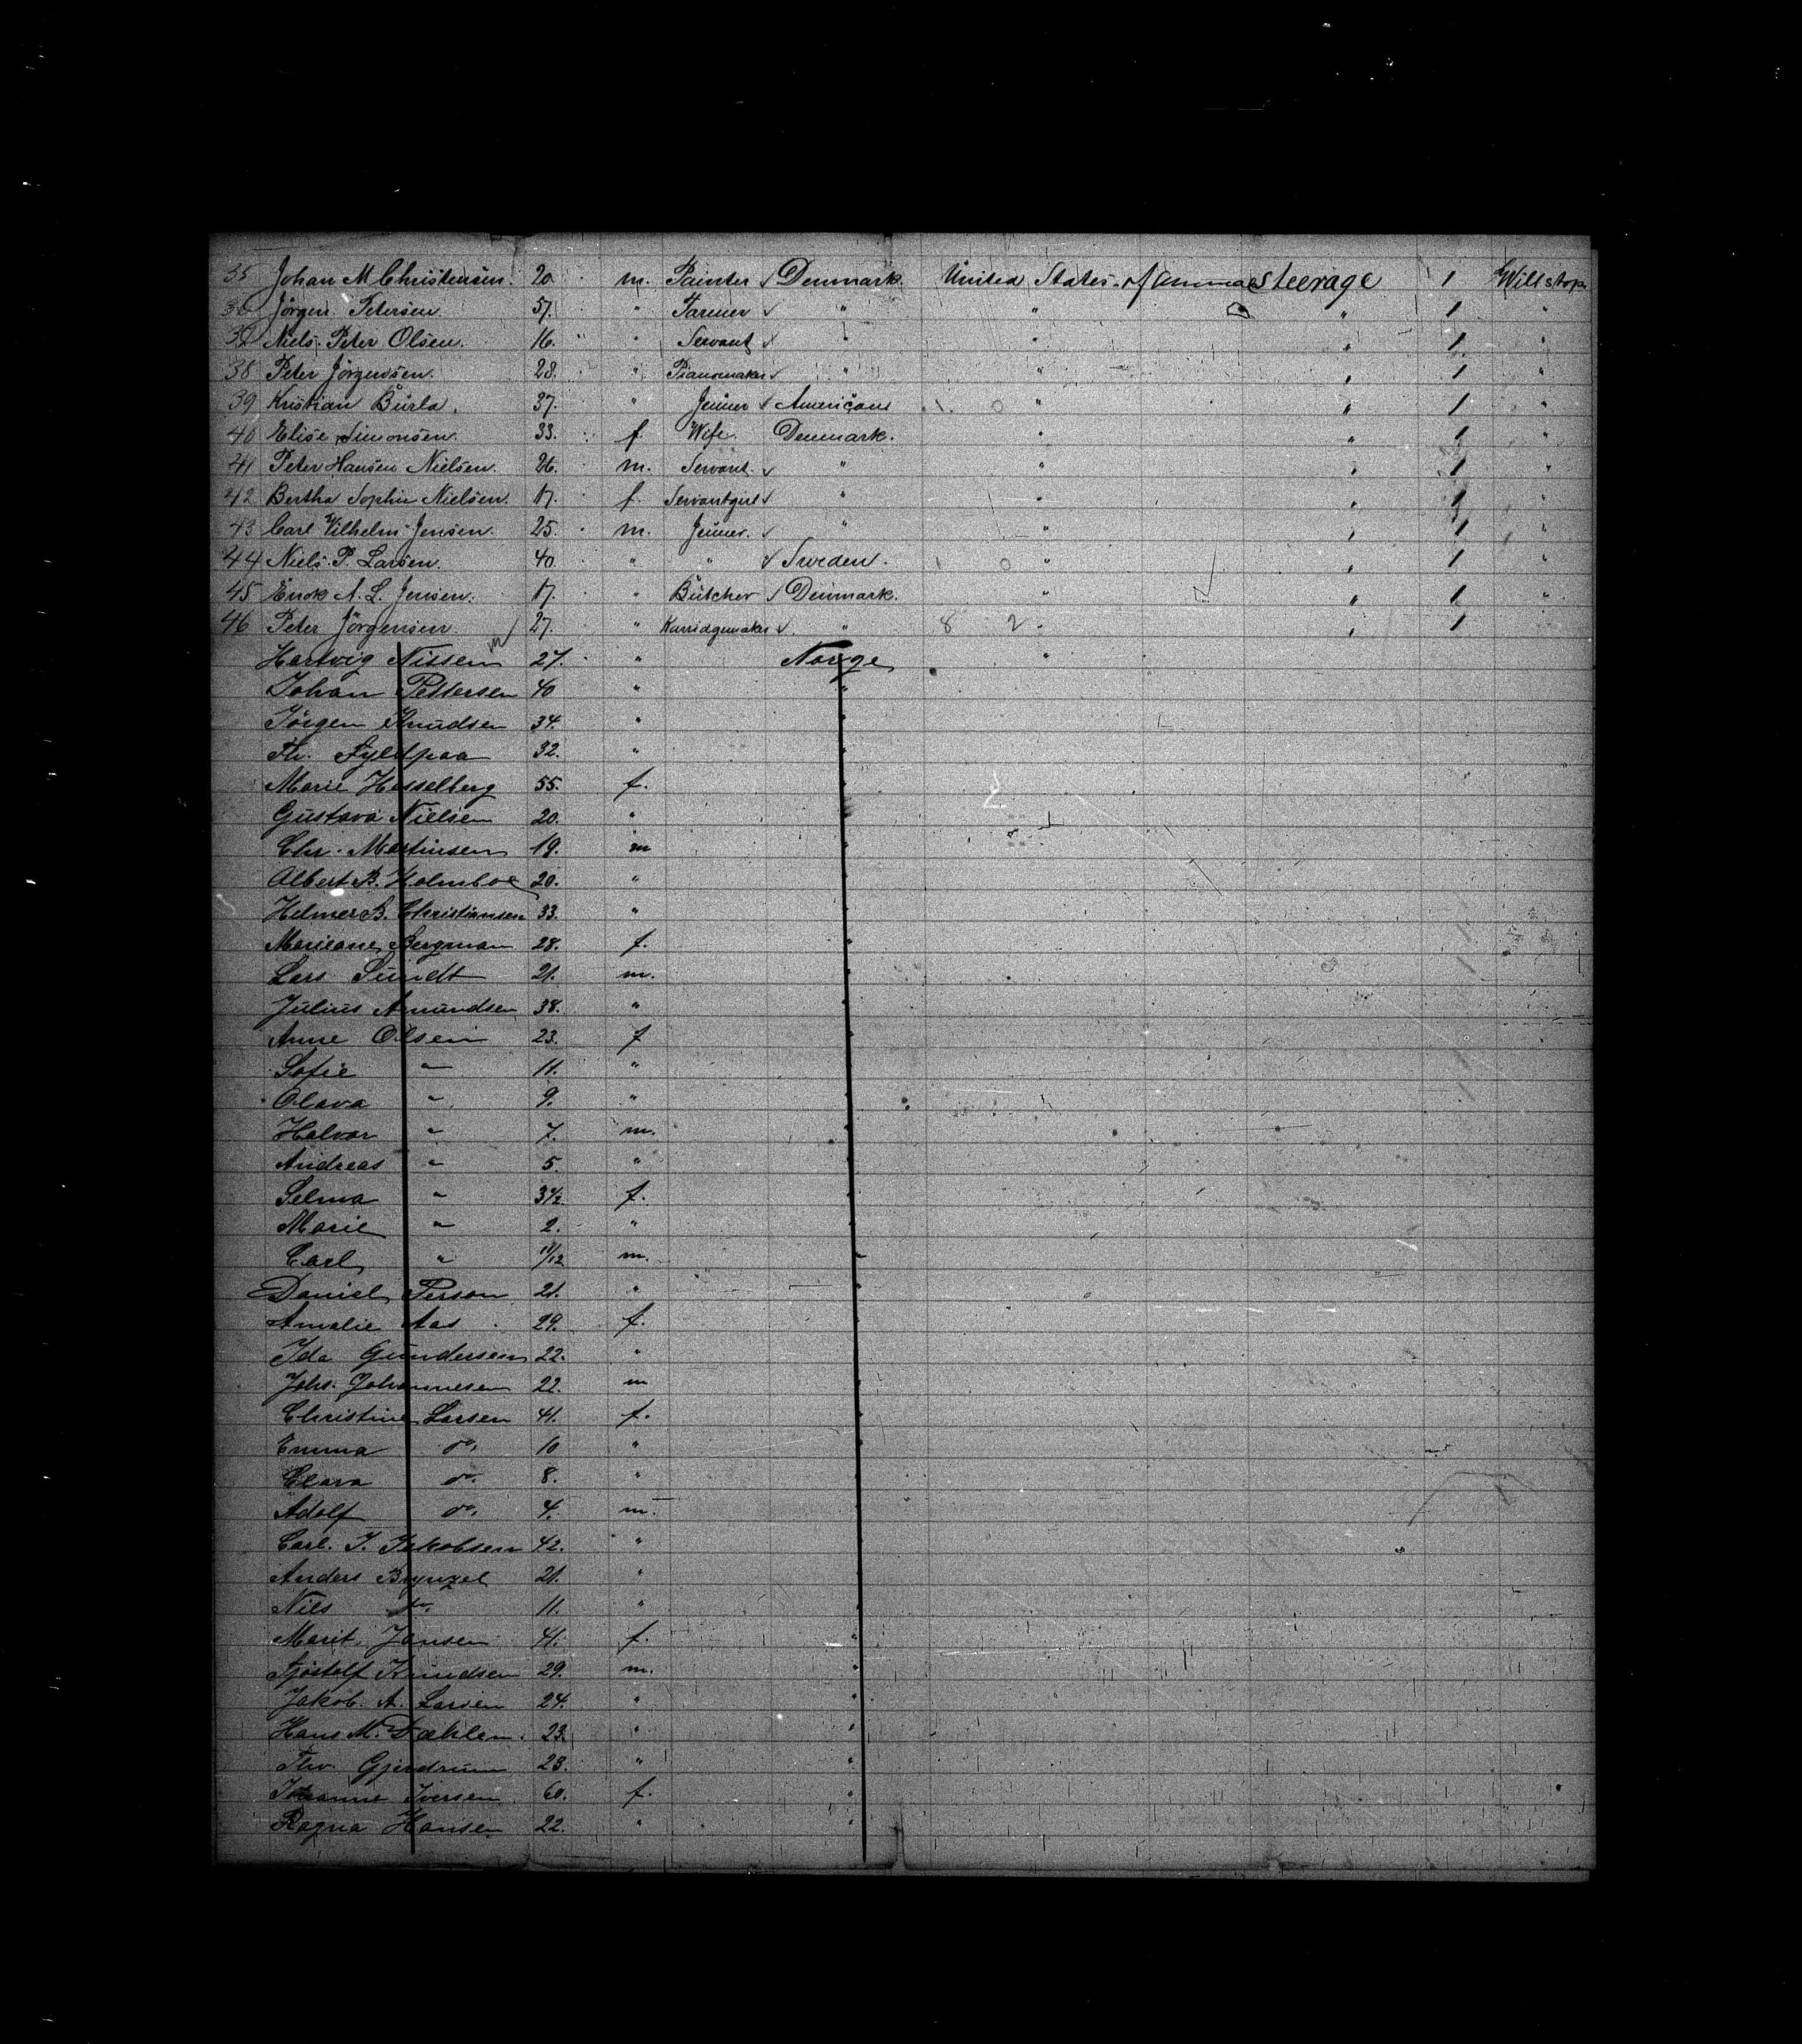 35 Johan M Christensen. 20. m. Painter √ Denmark. United States of America Steerage 1 Will stop
36 Jörgen Petersen. 57. " Farmer √ " " " 1 "
37 Niels Peter Olsen. 16. " Servant √ " " " 1 "
38 Peter Jörgensen. 28. " Pianomaker √ " " " 1 "
39 Kristian Burla. 37. " √ Americans " " 1 "
40 Elise Simonsen. 33. f. Wife. Denmark. " " 1 "
41 Peter Hansen Nielsen. 26. m. Servant. √ " " " 1 "
42 Bertha Sophie Nielsen. 17. f. Servantgirl √ " " " 1 "
43 Carl Vilhelm Jensen. 25. m. √ " " " 1 "
44 Niels P. Larsen. 40. " " √ Sweden. 1 0 " " 1 "
45 Enok A. L. Jensen. 17. " Butcher √ Denmark. " " 1 "
46 Peter Jörgensen 27. " Karridgemaker √. " 8 2 " " 1 "
Hartvig Nissen 27. " Norge "
Johan Pettersen 40 " "
Jörgen Knudsen 34. " "
Th. 32. " "
Marie Hesselberg 55. f. "
Gustava Nielsen 20. " "
Chr. Martinsen 19. m "
Albert B. Holmboe 20. " "
Helmer B. Christiansen 33. " "
Mariane Bergman 28. f. "
Lars Sundt 21. m. "
Julius Amundsen 38. " "
Anne Olsen 23. f "
Sofie " 11. " "
Olava " 9. " "
Halvor " 7. m. "
Andreas " 5. " "
Selma " 3 1/2 f. "
Marie " 2. " "
Carl " 11/12 m. "
Daniel Person 21. " "
Amalie Aas 29. f. "
Ida Gundersen 22. " "
Johs. Johannesen 22. m "
Christine Larsen 41. f. "
Emma do. 10 " "
Clara do. 8. " "
Adolf do. 4. m. "
Carl. J. Jakobsen 42. " "
Anders 21. " "
Nils do. 11. " "
Marit Jansen 41. f. "
Tjöstolf Knudsen 29. m. "
Jakob. A. Larsen 24. " "
Hans M. Dæhlen. 23. " "
Thv. Gjerdrum 23. " "
Johanne Iversen 60. f. "
Ragna Hansen 22. " "